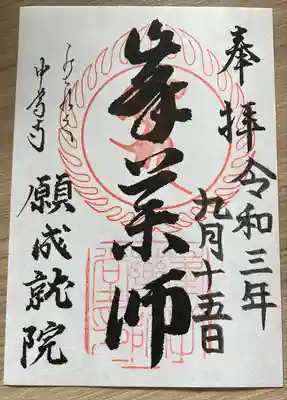 奉拝
令和三年
九月十五日
峯薬師
中尊寺
願成就院